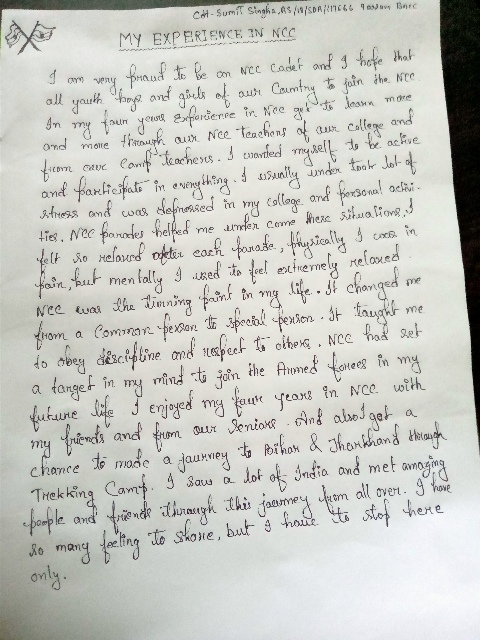 Cdt- Sumit Singha, AS/18/SDA/
MY EXPERIENCE IN NCC
I am very proud to be an NCC Cadet and I hope that
all youth boys and girls of our Country to join the NCC
In my four years experience in NCC get to learn more
and more through our NCC teachers of our college and
from our Camp teachers. I wanted myself to be active
and participate in everything. I usually under took lot of
stress and was depressed in my college and personal acti-
ties. NCC parades helped me under come these situations, I
felt so relaxed after each parade, physically I was in
pain, but mentally I used to feel extremely relaxed.
NCC was the tinning point in my life. It changed me
from a Common-person to special person. It taught me
to obey discipline and respect to others. NCC had set
a target in my mind to join the Armed forces in my
future life I enjoyed my four years in NCC with
my friends and from our seniors. And also I got a
chance to made a journey to Bihar & Jharkhand through
Trekking Camp. I saw a lot of India and met amazing
people and friends through this journey from all over. I have
so many feeling to share, but I have to stop here
only.